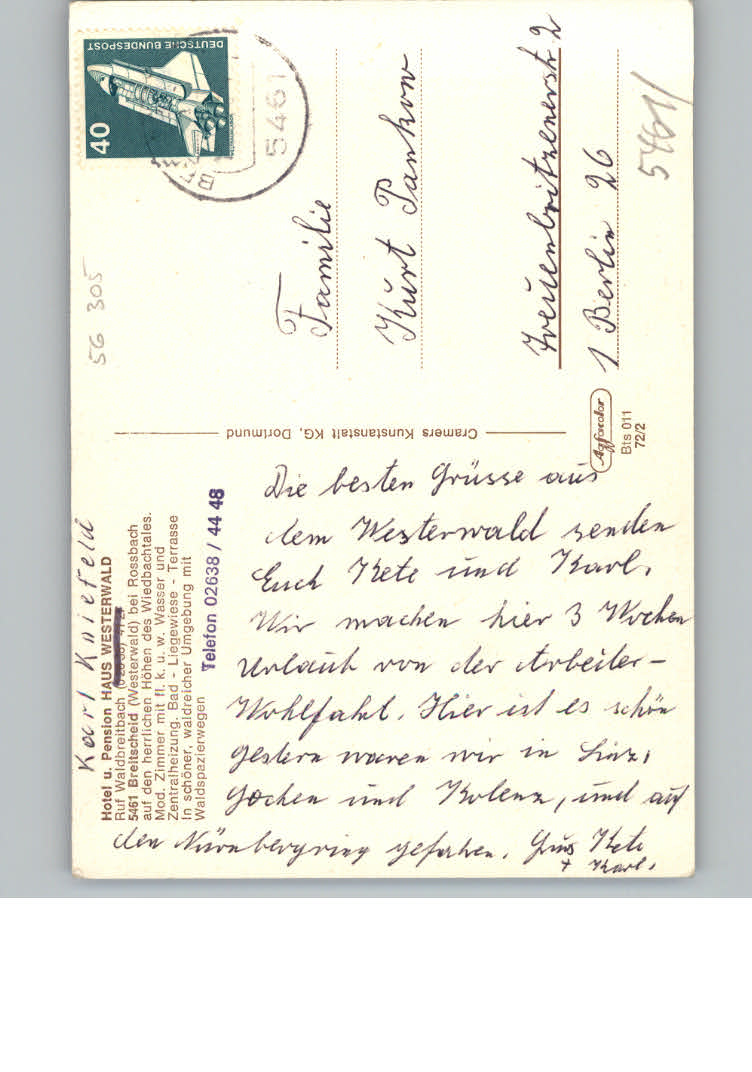 Karl Kniefeld
Hotel u. Pension HAUS WESTERWALD
Ruf Waldbreitbach
5461 Breitscheid (Westerwald) bei Rossbach
auf den herrlichen Höhen des Wiedbachtales.
Mod. Zimmer mit fl. k. u. w. Wasser und
Zentralheizung. Bad - Liegewiese - Terrasse
In schöner, waldreicher Umgebung mit
Waldspazierwegen
Telefon 02638 / 44 48
Die besten Grüsse aus
dem Westerwald senden
Euch Kete und Karl.
Wir machen hier 3 Wochen
Urlaub von der Arbeiter-
Wohlfahrt. Hier ist es schön
gestern waren wir in Linz,
Gochen und Kolenz, und auf
den Nürnbergring gefahren. Gruß Kete
+ Karl.
Cramers Kunstanstalt KG, Dortmund
Agfacolor
Bts 011
72/2
56 305
DEUTSCHE BUNDESPOST
40
5461
Familie
Kurt Pankow
Treuenbritzenerstr 2
1 Berlin 26
5461/